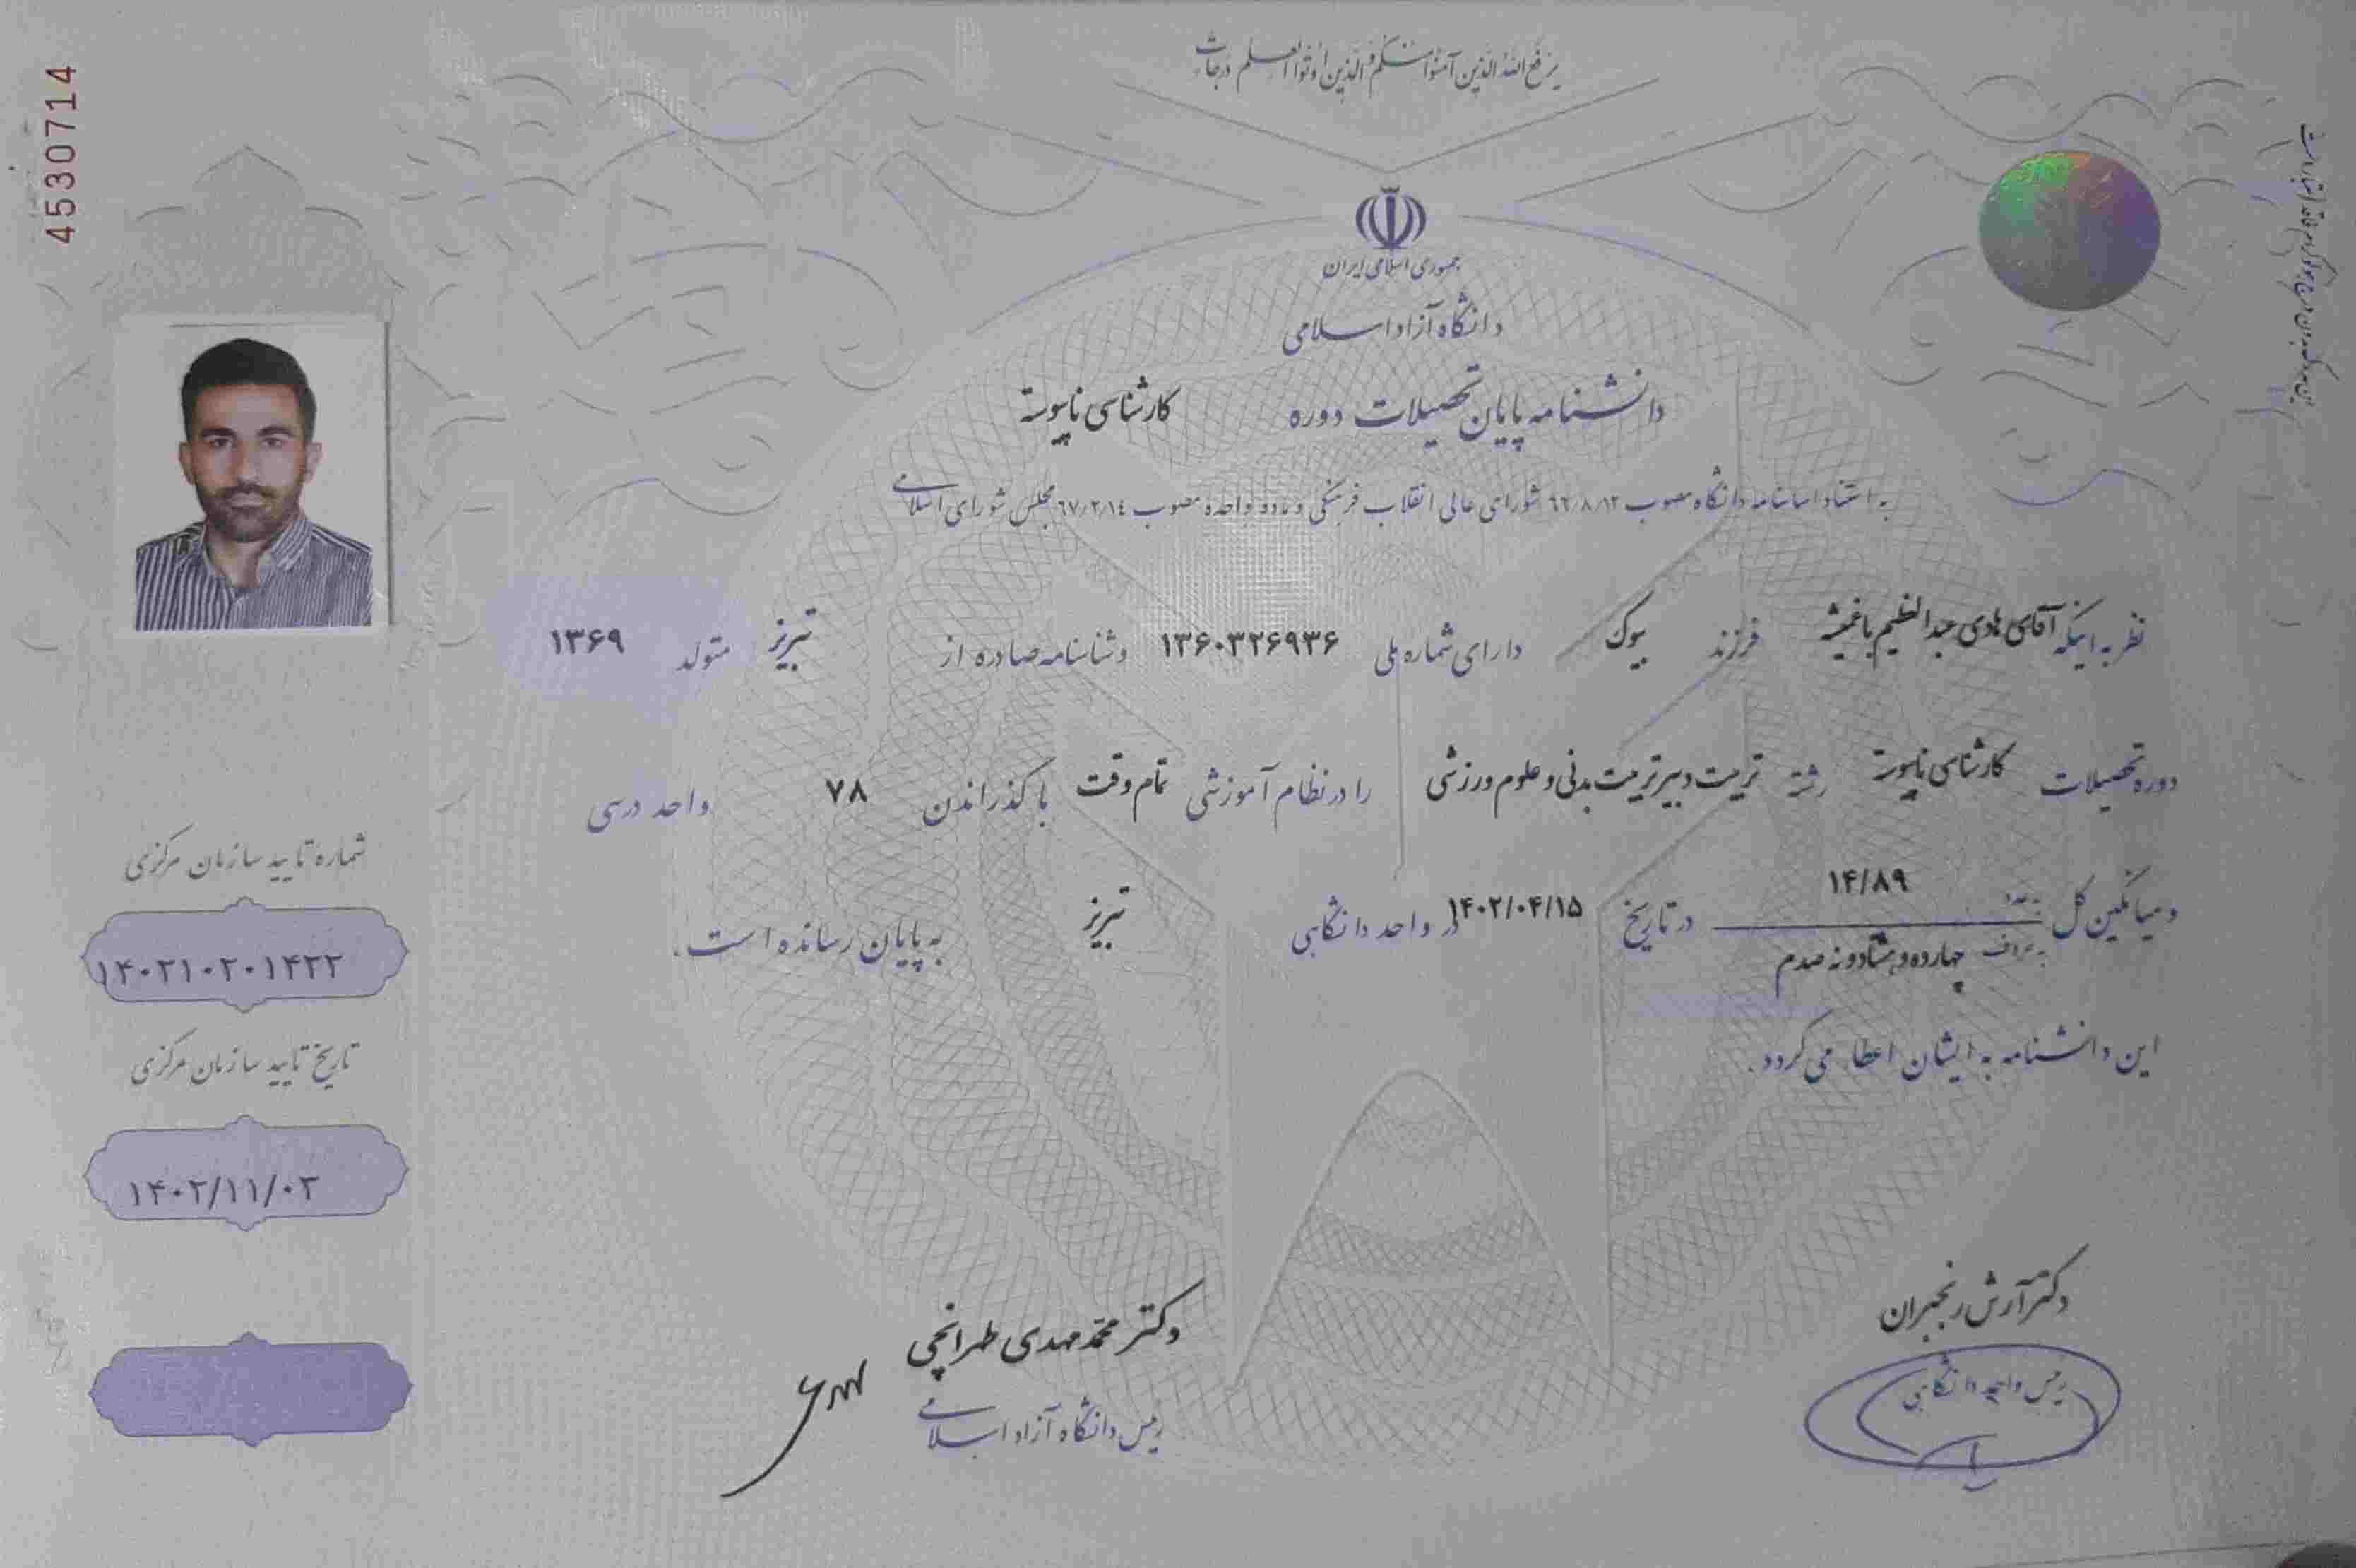 یرفع الله الذین آمنوا منکم و الذین اوتوا العلم درجات
جمهوری اسلامی ایران
دانشگاه آزاد اسلامی
دانشنامه پایان تحصیلات دوره کارشناسی ناپیوسته
به استناد اساسنامه دانشگاه مصوب ٦٦/٨/١٢ شورای عالی انقلاب فرهنگی و ماده واحده مصوب ٦٧/٢/١٤ مجلس شورای اسلامی
نظر به اینکه آقای هادی عبدالعظیم باغمیشه فرزند بیوک دارای شماره ملی ۱۳۶۰۳۲۶۹۳۶ و شناسنامه صادره از تبریز متولد ۱۳۶۹
دوره تحصیلات کارشناسی ناپیوسته رشته تربیت دبیر تربیت بدنی و علوم ورزشی را در نظام آموزشی تمام وقت با گذراندن ۷۸ واحد درسی
و میانگین کل به عدد ۱۴/۸۹ به حروف چهارده و هشتاد و نه صدم در تاریخ ۱۴۰۲/۰۴/۱۵ در واحد دانشگاهی تبریز به پایان رسانده است.
این دانشنامه به ایشان اعطا می گردد.
دکتر آرش رنجبران
رئیس واحد دانشگاهی
دکتر محمد مهدی طهرانچی
رئیس دانشگاه آزاد اسلامی
شماره تایید سازمان مرکزی
۱۴۰۲۱۰۲۰۱۴۲۲
تاریخ تایید سازمان مرکزی
۱۴۰۲/۱۱/۰۲
4530714